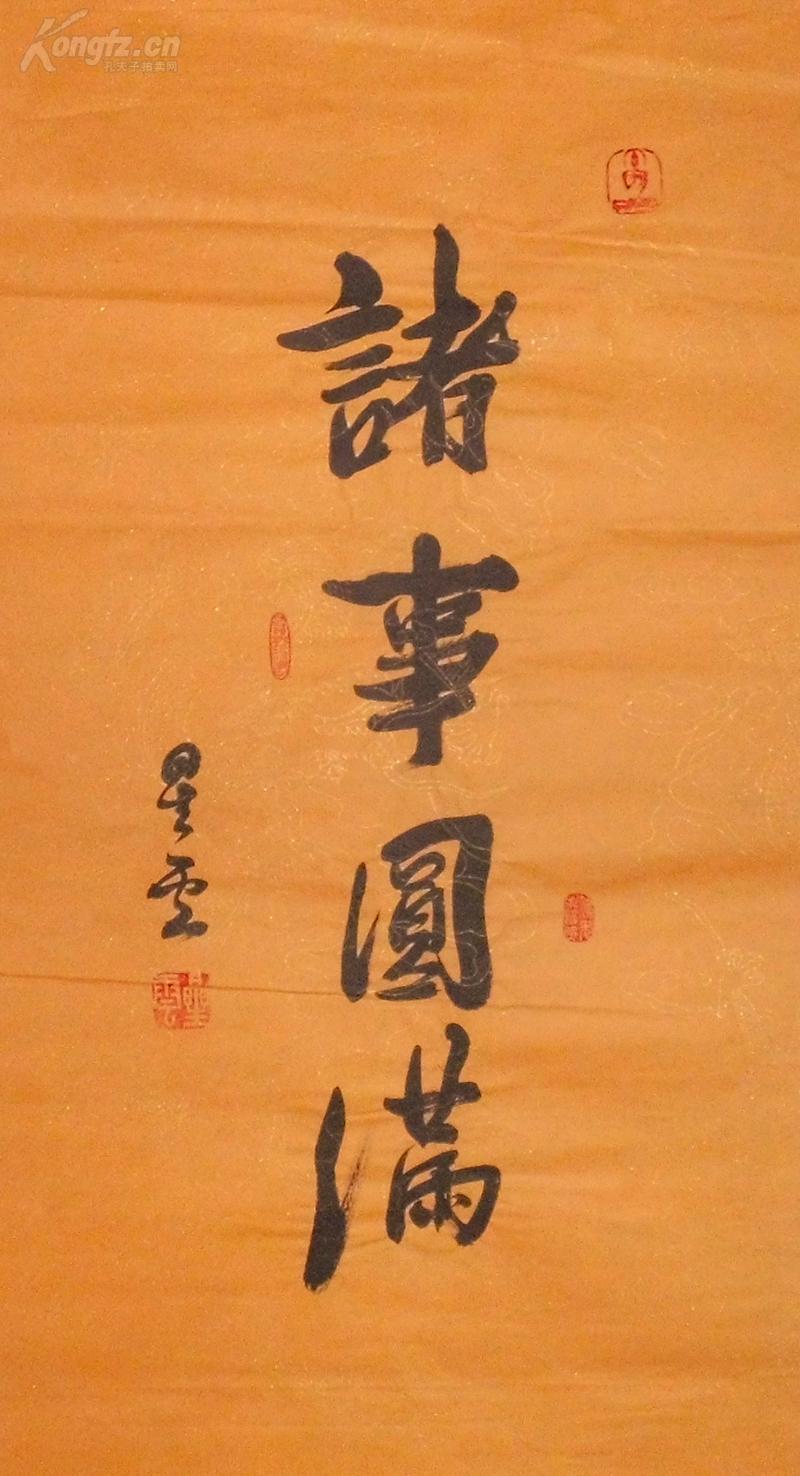 Kongfz.cn
孔夫子拍卖网
諸事圓滿
星雲
星雲